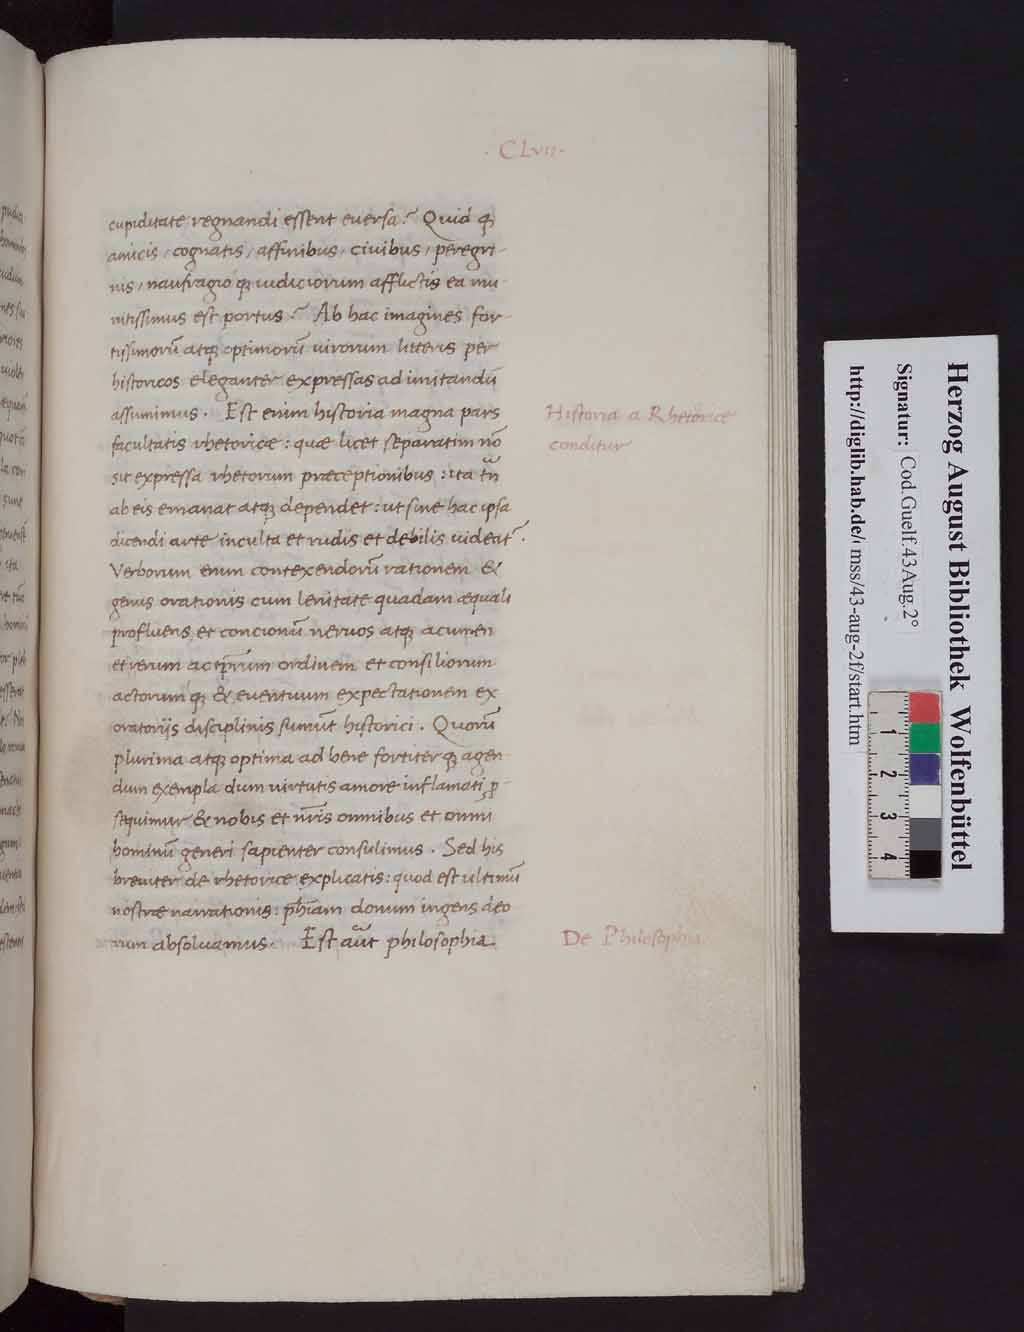 ·CLvii·
cupiditate regnandi essent euersa? Quid qꝫ
amicis / cognatis / affinibus / ciuibus / peregri-
nis / naufragio qꝫ iudiciorum afflictis ea mu-
nitissimus est portus? Ab hac imagines for-
tissimorū atqꝫ optimorū uirorum litteris per
historicos eleganter expressas ad imitandū
assumimus. Est enim historia magna pars
facultatis rhetoricæ: quæ licet separatim nō
sit expressa rhetorum præceptionibus: ita tn̄
ab eis emanat atqꝫ dependet: ut sine hac ipsa
dicendi arte inculta et rudis et debilis uideat᷑.
Verborum enim contexendorū rationem &
genus orationis cum lenitate quadam æquali
profluens et concionū neruos atqꝫ acumen
et rerum ac tp̄rum ordinem et consiliorum
actorum qꝫ & euentuum expectationem ex
oratorijs disciplinis sumūt historici. Quorū
plurima atqꝫ optima ad bene fortiter qꝫ agen-
dum exempla dum uirtutis amore inflamati ꝓ-
sequimur & nobis et nr̄is omnibus et omni
hominū generi sapienter consulimus. Sed his
breuiter de rhetorice explicatis: quod est ultimū
nostræ narrationis: ph̄iam donum ingens deo
rum absoluamus. Est aūt philosophia
Historia a Rhetorice
conditur
De Philosophia
Herzog August Bibliothek Wolfenbüttel
Signatur: Cod.Guelf.43 Aug.2°
http://diglib.hab.de/ mss/43-aug-2f/start.htm
1
2
3
4